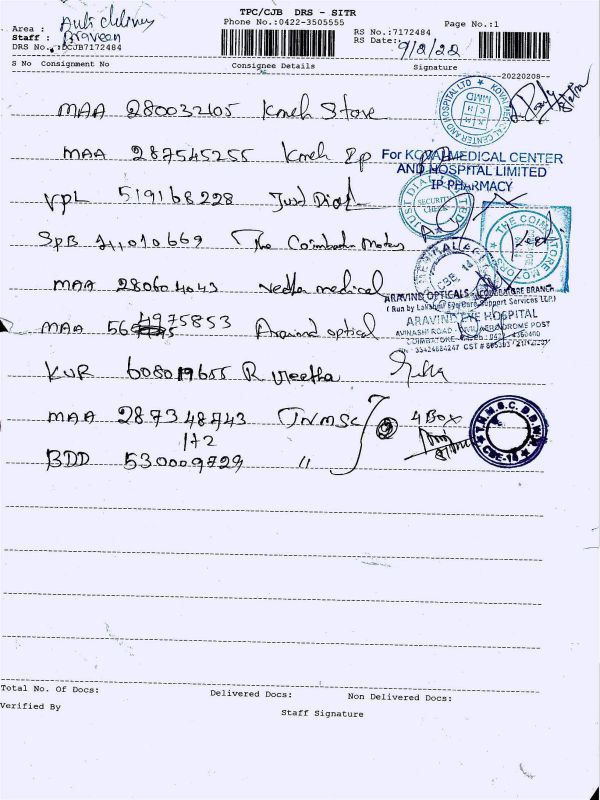 TPC/CJB DRS - SITR
Area :
Phone No.:0422-3505555
Page No.:1
Staff : Praveen
RS No.:7172484
DRS No.:DCJB7172484
RS Date: 9/2/22
S No Consignment No Consignee Details Signature
20220208
MAA 280032105 Kmch Store
MAA 287545255 Kmch Ip
For KOVAI MEDICAL CENTER
AND HOSPITAL LIMITED
IP PHARMACY
VPL 519168228 Just Dial
SECURITY
SPB 211010669 The Coimbatore Motors
THE COIMBATORE MOTORS
MAA 280604043 Nedha medical
ARAVIND OPTICALS - COIMBATORE BRANCH
( Run by Lakshmi Eye Care Support Services LLP.)
MAA 56 4975853 Aravind optical
ARAVIND EYE HOSPITAL
AVINASHI ROAD, CIVIL AERODROME POST
KUR 608019655 R Vleetha
MAA 287348743 TNMSC 4 Box
1+2
BDD 530009729 "
T.N.M.S.C.
CBE-14
Total No. Of Docs: Delivered Docs: Non Delivered Docs:
Verified By
Staff Signature